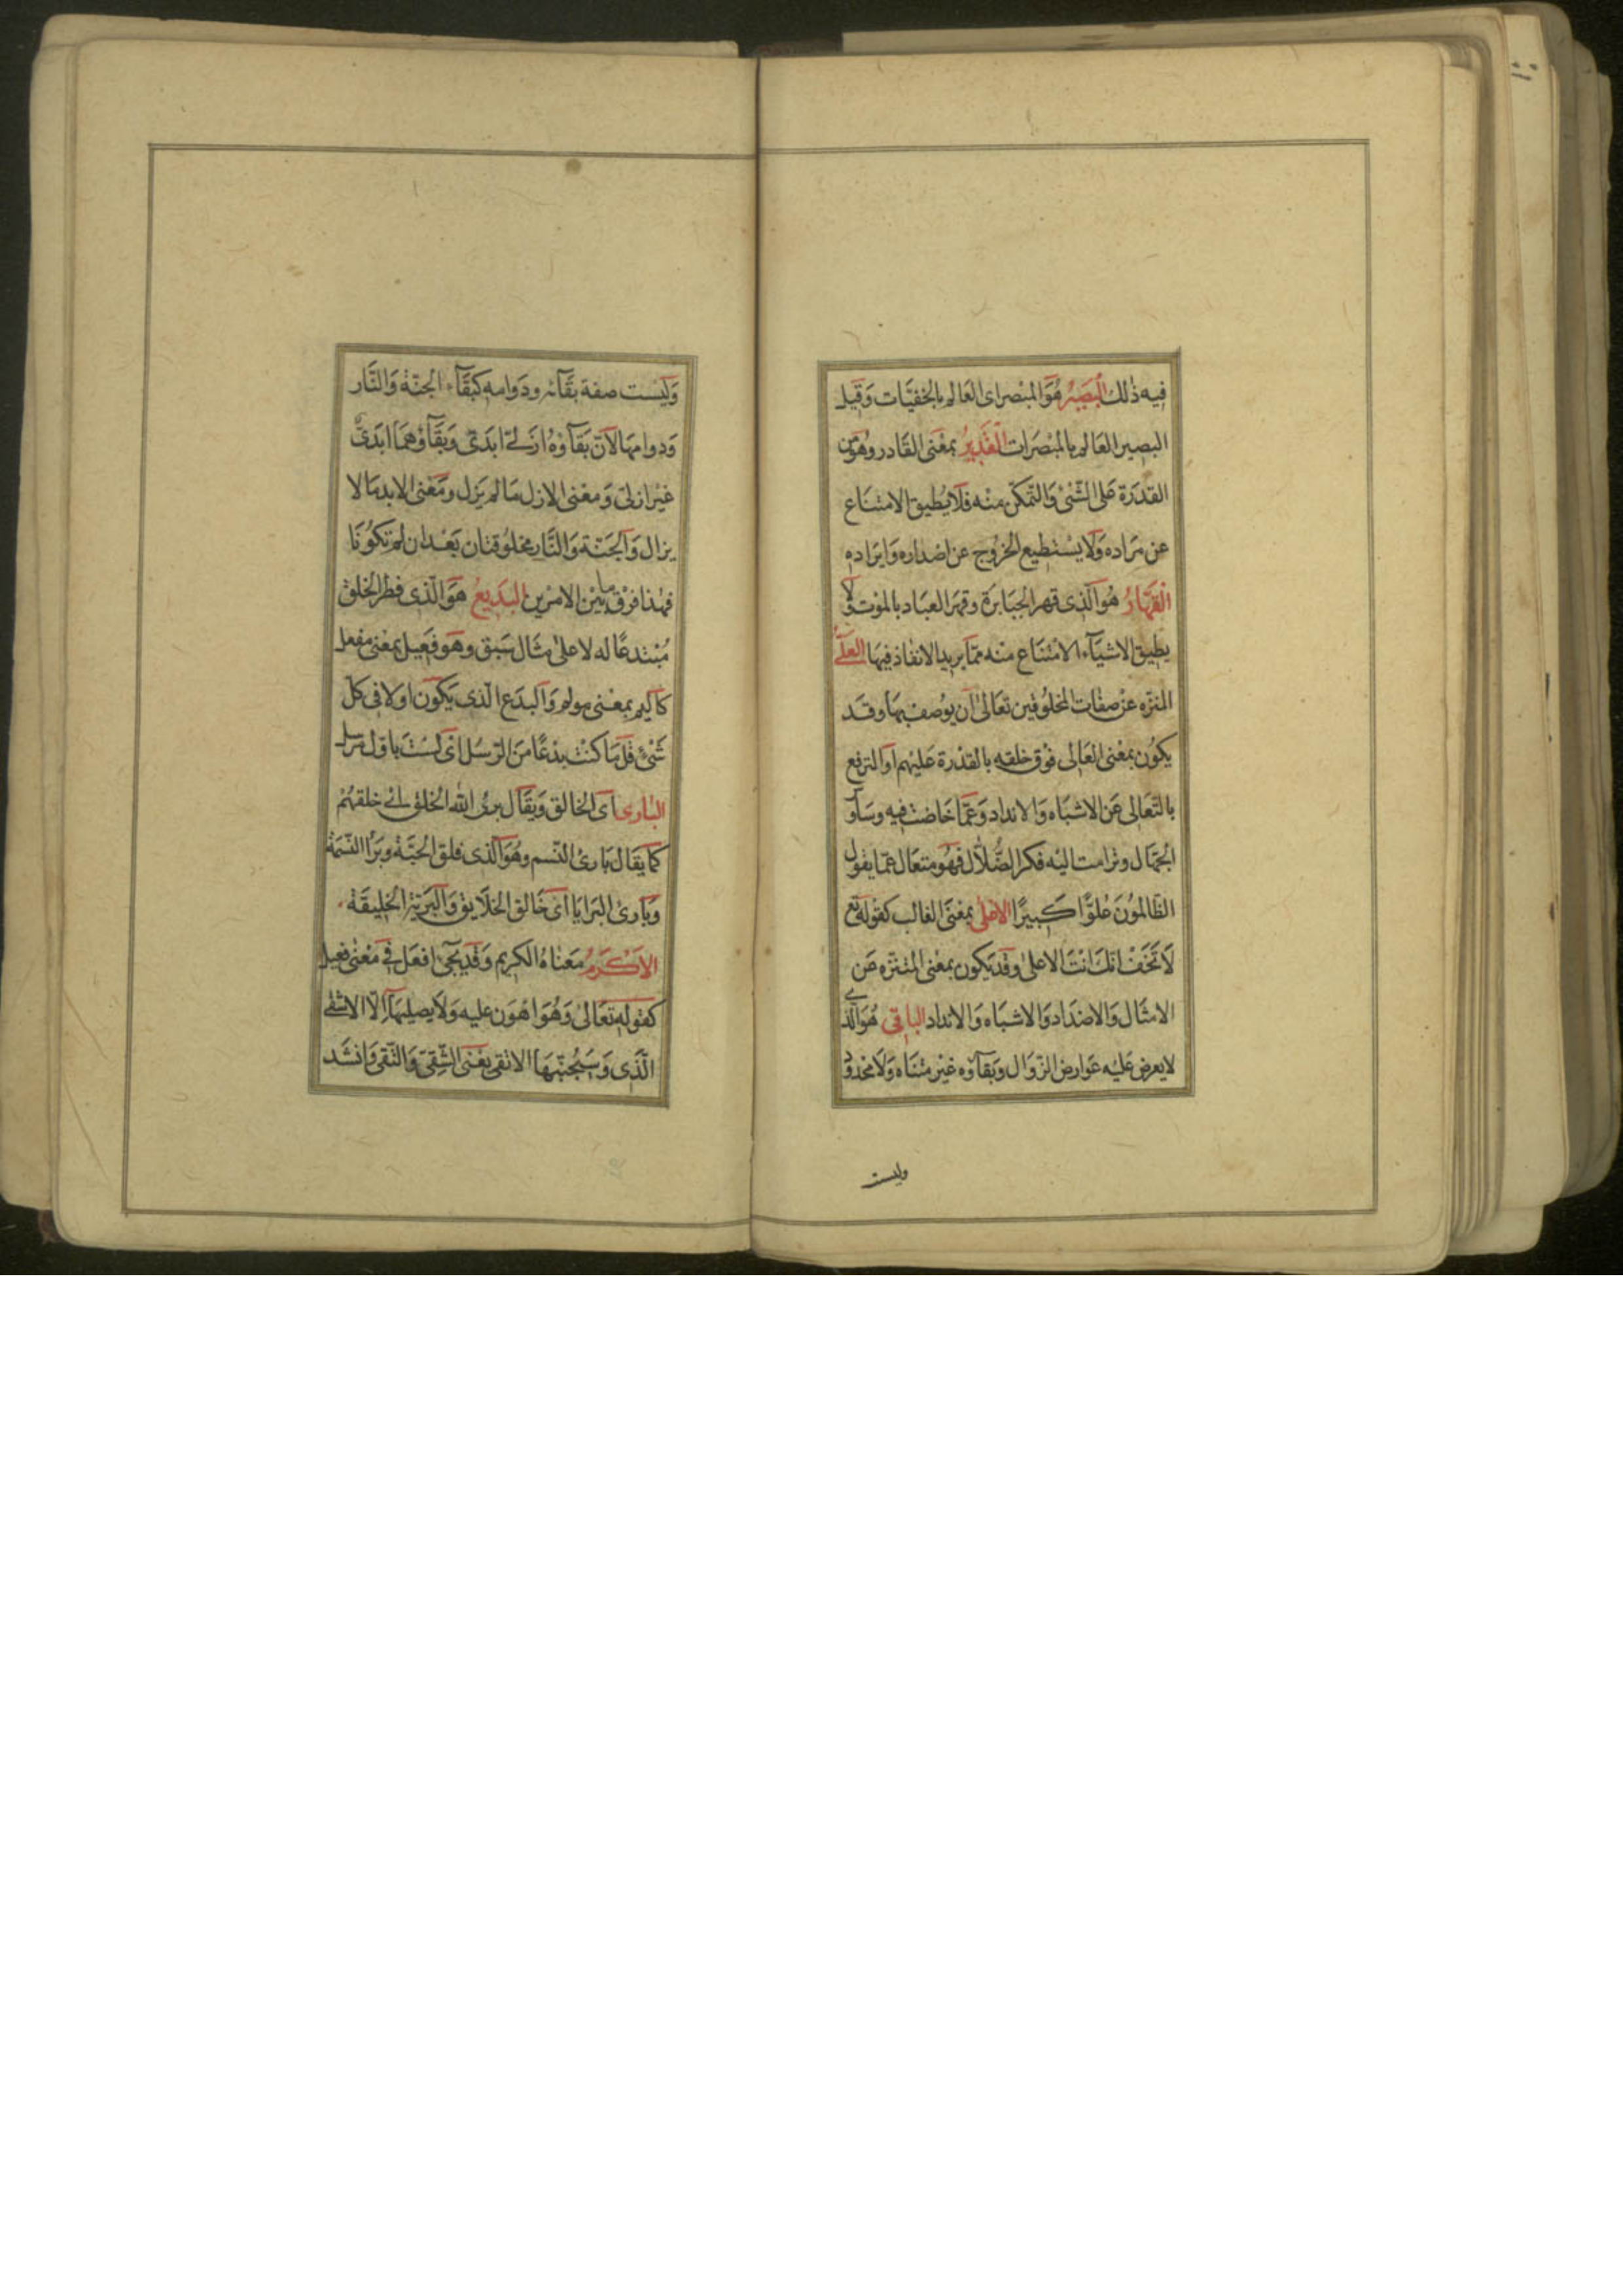 فيه ذلك البَصِيرُ هُوَ المبْصر اى العَالم بالخفيَّات وَقيل
البصير العَالم بالمبْصَرَات القَدِيرُ بمعْنى القَادر وهُوَ من
القدَرَة عَلى الشّئ وَالتّمكّن منْه فلَا يُطيق الامتنَاع
عن مَراده وَلَا يسْتطيع الخرُوج عن اصْداره وَايرَاده
القَهَّارُ هُوَ الّذى قهر الجبَابرَة وقهَر العبَاد بالموْت وَلَا
يطيق الاشيَآء الامْتنَاع منْه ممّا يريد الانفاذ فيهَا العَلىّ
المنزّه عنْ صفَات المخلُوقين تعَالىٰ اَن يوُصف بهَا وقَد
يكوُن بمعْنى العَالى فوْق خلقه بالقدْرة عَليْهم اَو الترفع
بالتّعَالى عَن الاشبَاه وَالانداد وَعَمّا خَاضت فيه وسَاوَ
الجهَّال وترامت اليْه فكر الضُّلَّال فهُو متعَال عمّا يقول
الظّالموُنَ عُلوًّا كَبيرًا الاعْلى بمعْنَى الغالب كقوْله تع
لَا تَخَفْ انّكَ انْتَ الاعلىٰ وقَد يَكون بمعْنى المتنزّه عَن
الامثَال وَالاضدَاد وَالاشبَاه وَالانداد الباقى هُوَ الّذى
لا يعرض عَليْه عَوارض الزّوَال وَبقَآؤه غيْر متنَاه وَلَا محْدوُد
وليست
وَليْست صفة بقَآئه ودَوامه كبقَآء الجنّة وَالنَّار
وَدوامهَا لاَنّ بَقَآؤهُ ازَلىّ ابدَىّ وَبقَآؤهمَا ابدَىّ
غيْر ازلىّ وَمعْنى الازل مَا لم يَزل ومَعْنى الابد مَا لا
يزال وَالجَنّة وَالنَّار مخلوُقتان بَعْد ان لم تكوُنَا
فهٰذا فرْق ما بيْن الامرَين البَديعُ هوَ الّذى فطر الخلق
مُبْتدعًا له لا علىٰ مثَال سَبق وهوَ فَعِيل بمعْنى مفعل
كاَليم بمعْنى مولم وَالبدَع الّذى يَكون اوّلا فى كلّ
شَئ قل مَا كنْت بدْعًا منَ الرّسُل اىْ لسْتَ باوّل مرسل
البٰارى اى الخالق وَيقَال برئ الله الخلق اى خلقهُمْ
كمَا يقَال بَارئ النّسم وهُوَ الّذى فلق الحبّة وبَرَأ النّسَمَة
وبَارئ البَرايَا اىْ خَالق الخلَايق وَالبَريّة الخليقَة
الاَكْرَمُ مَعنَاهُ الكريم وَقد يجَئ افعَل فى مَعْنى فعيل
كقوْله تعَالىٰ وَهُوَ اهْوَن عليْه وَلا يصليهَآ اِلّا الاشقى
الّذَى وَسَيُجنّبهَا الاتقى يعْنى الشّقىّ وَالتّقى وَانشَد